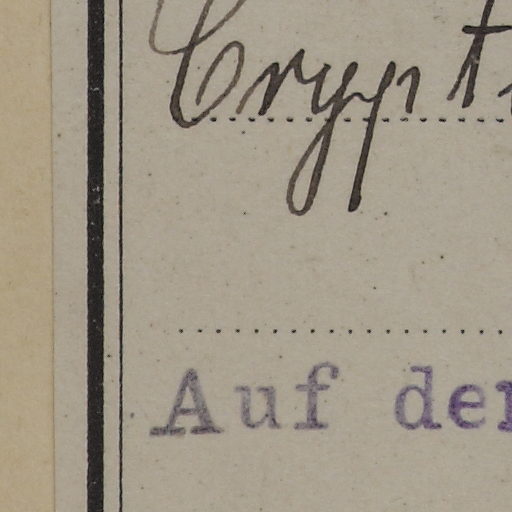 Crypt
Auf der